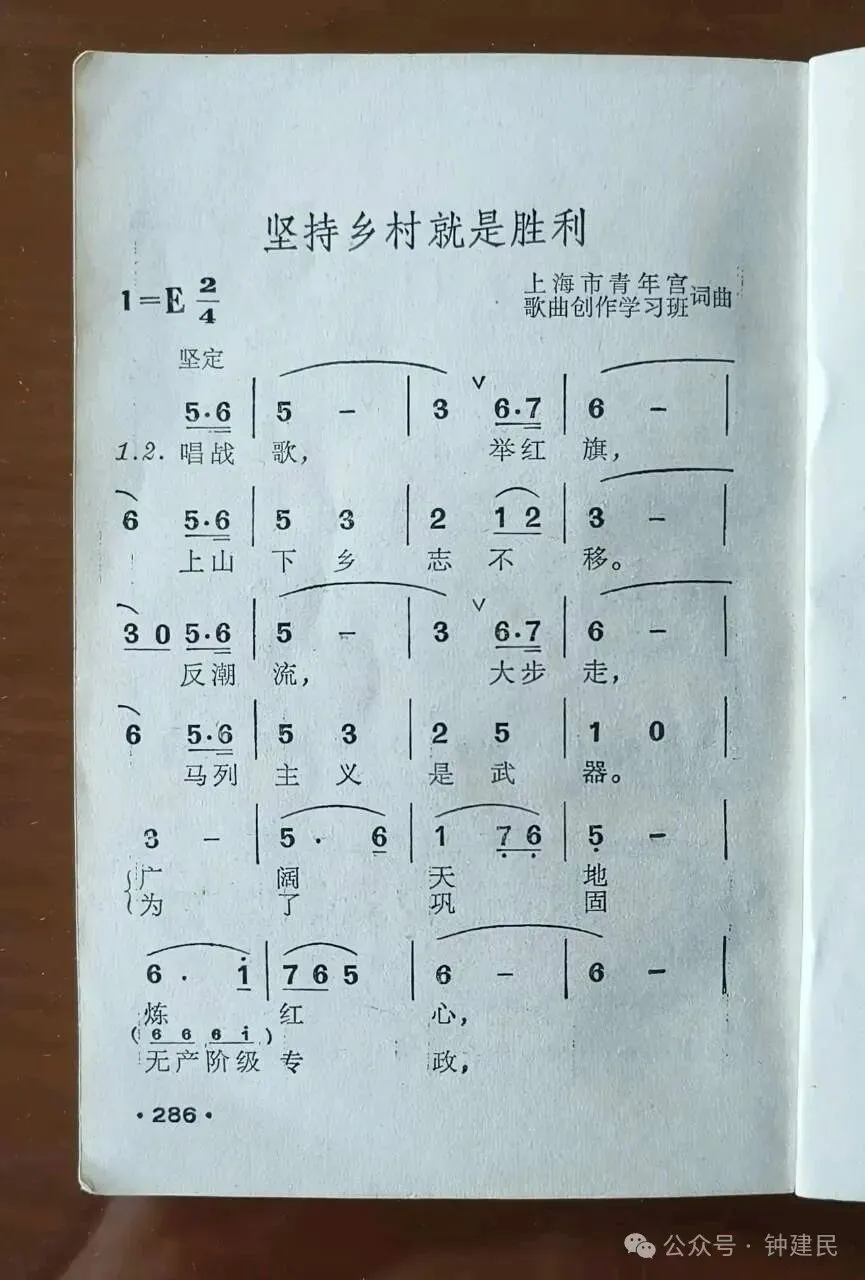 坚持乡村就是胜利
1=E 2/4
上海市青年宫
歌曲创作学习班 词曲
坚定
5·6 | 5 – | 3 ∨ 6·7 | 6 – |
1.2. 唱战 歌, 举红 旗,
6 5·6 | 5 3 | 2 1 2 | 3 – |
上山 下 乡 志 不 移。
3 0 5·6 | 5 – | 3 ∨ 6·7 | 6 – |
反潮 流, 大步 走,
6 5·6 | 5 3 | 2 5 | 1 0 |
马列 主 义 是 武 器。
3 – | 5 · 6 | 1 7̣ 6̣ | 5̣ – |
广 阔 天 地
为 了 巩 固
6 · i | 7 6 5 | 6 – | 6 – |
炼 红 心,
(6 6 6 i)
无产阶级 专 政,
·286·
公众号·钟建民